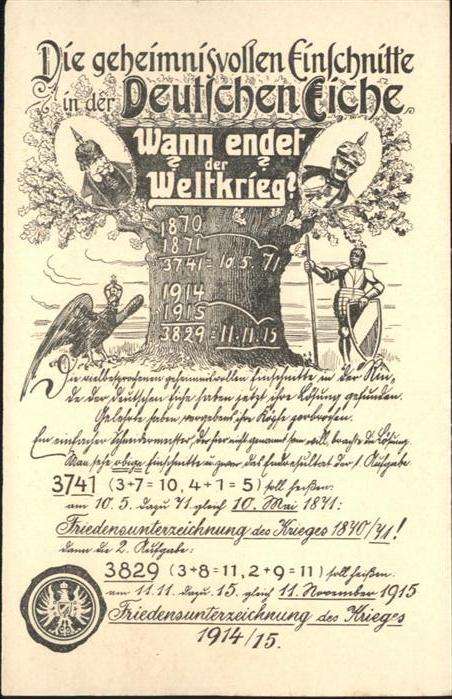 Die geheimnisvollen Einschnitte
in der Deutschen Eiche.
Wann endet
? der ?
Weltkrieg?
1870
1871
3741 = 10.5. 71
1914
1915
3829 = 11.11.15
Die vielbesprochenen geheimnisvollen Einschnitte in der Rin-
de der deutschen Eiche haben jetzt ihre Lösung gefunden.
Gelehrte haben vergebens ihre Köpfe zerbrochen.
Ein einfacher der hier nicht genannt sein will, brachte die Lösung.
Man sehe obige Einschnitte u. zwar das Endresultat der 1. Aufgabe
3741 (3+7=10, 4+1=5) soll heißen:
am 10.5. dazu 71 gleich 10. Mai 1871:
Friedensunterzeichnung des Krieges 1870/71!
dann die 2. Aufgabe:
3829 (3+8=11, 2+9=11) soll heißen.
am 11.11. dazu 15. gleich 11. November 1915
Friedensunterzeichnung des Krieges
1914/15.